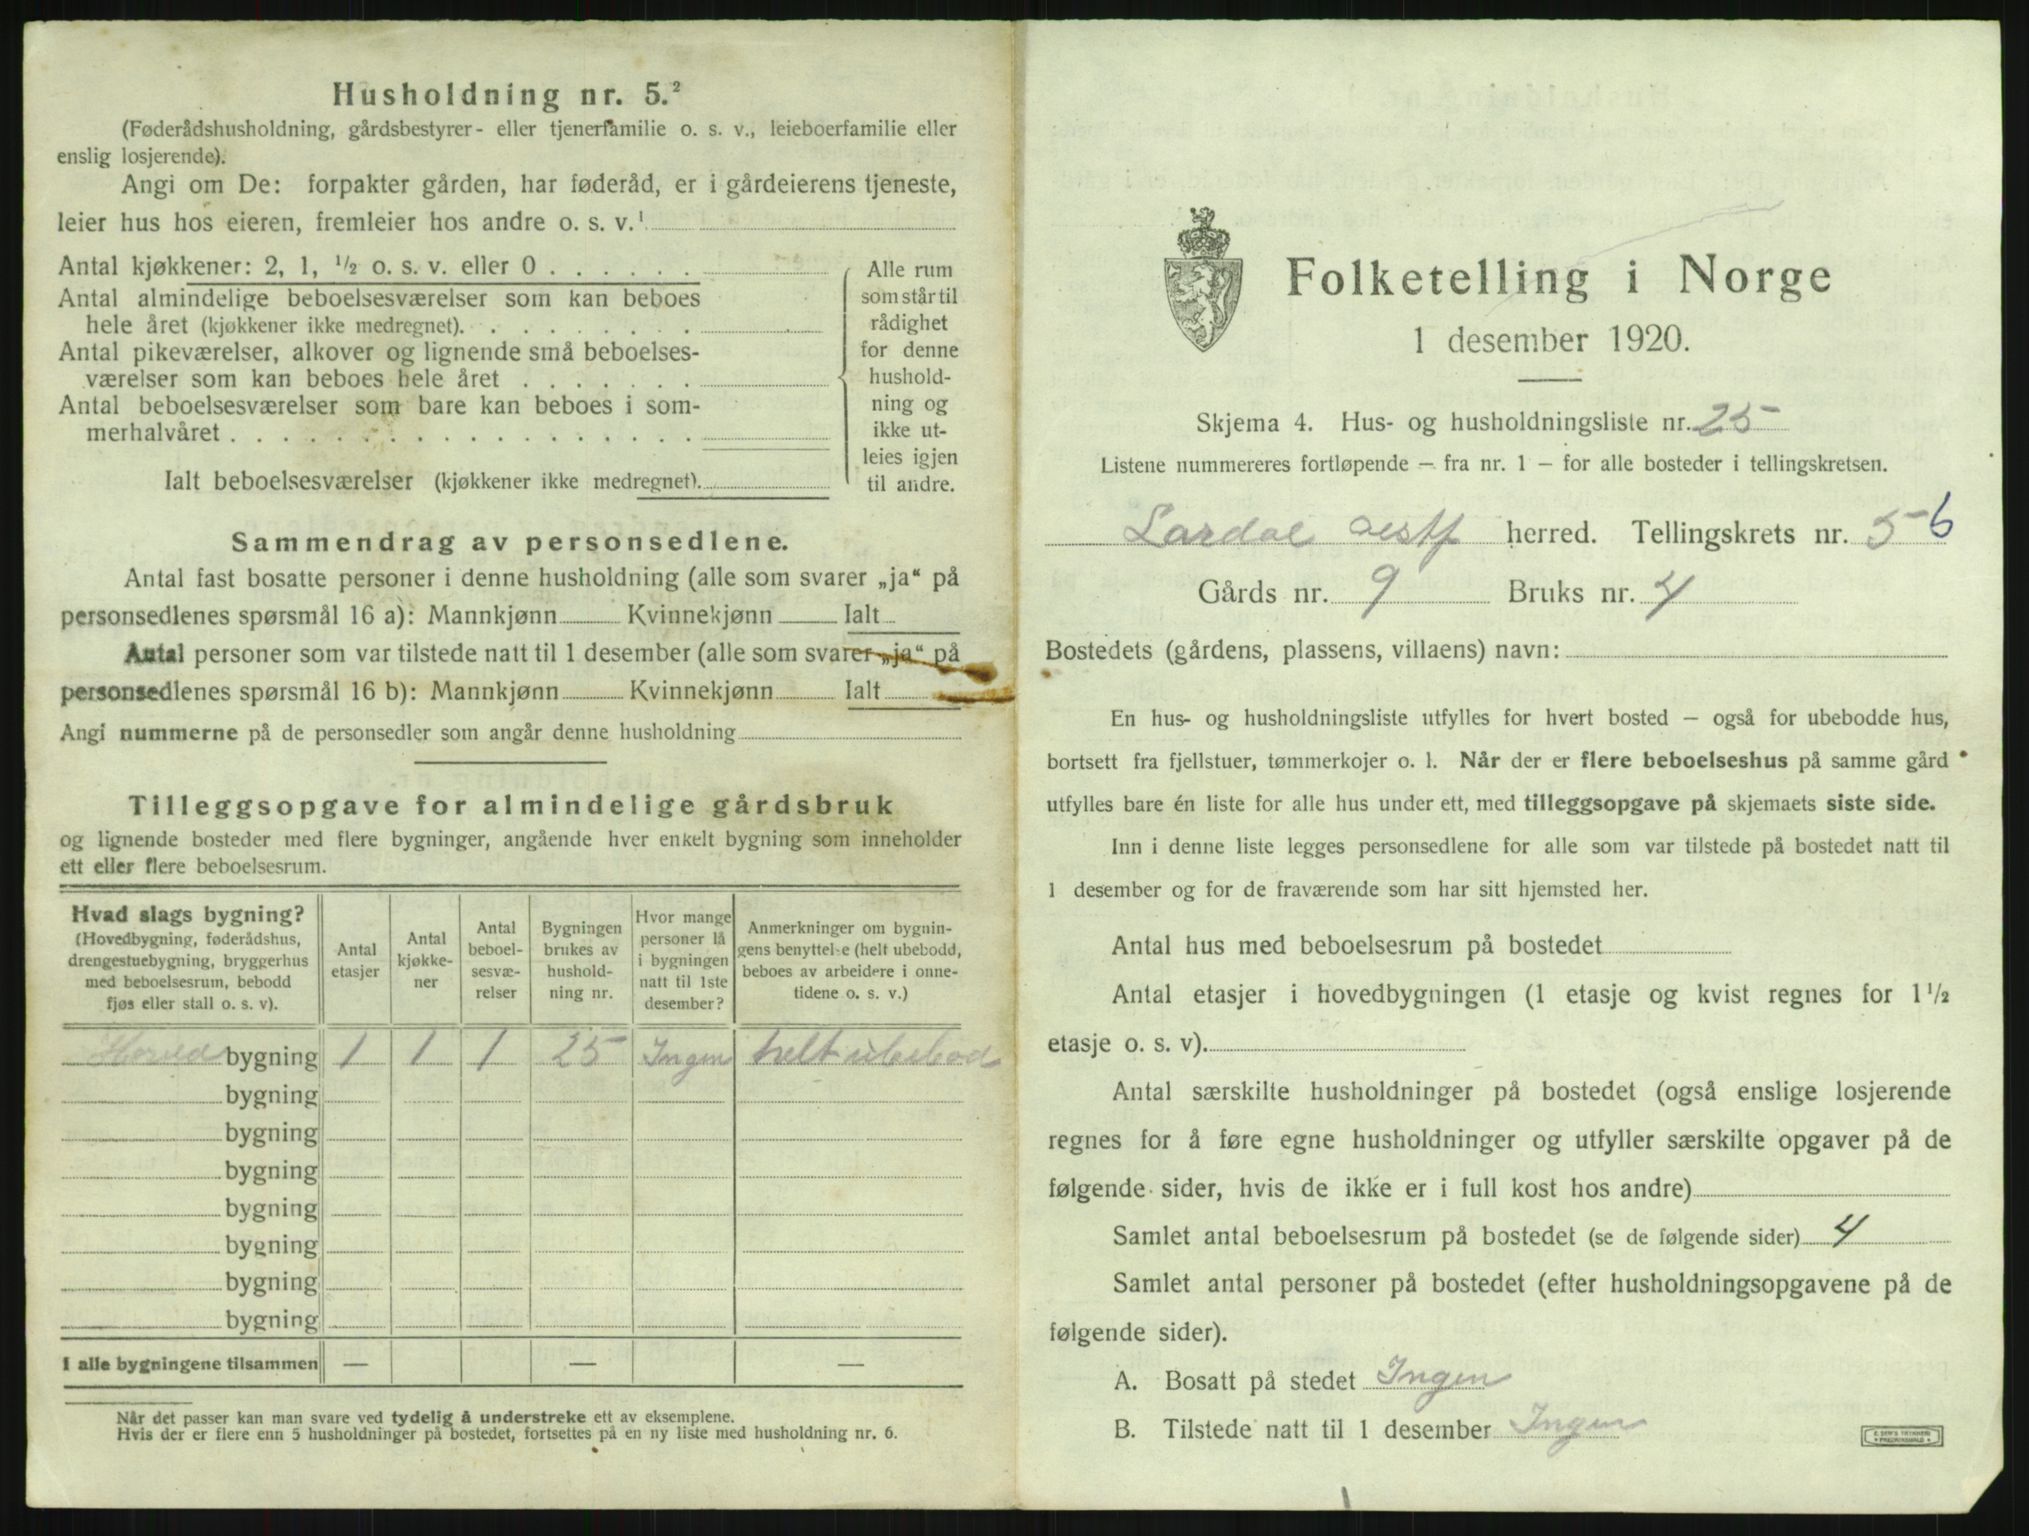 Husholdning nr. 5.²
(Føderådshusholdning, gårdsbestyrer- eller tjenerfamilie o. s. v., leieboerfamilie eller
enslig losjerende).
Angi om De: forpakter gården, har føderåd, er i gårdeierens tjeneste,
leier hus hos eieren, fremleier hos andre o. s. v.¹
Antal kjøkkener: 2, 1, ½ o. s. v. eller 0 . . . . . .
Antal almindelige beboelsesværelser som kan beboes
hele året (kjøkkener ikke medregnet). . . . . . . . .
Antal pikeværelser, alkover og lignende små beboelses-
værelser som kan beboes hele året . . . . . . .
Antal beboelsesværelser som bare kan beboes i som-
merhalvåret . . . . . . . . . . . . . . . . . .
Ialt beboelsesværelser (kjøkkener ikke medregnet).
Alle rum
som står til
rådighet
for denne
hushold-
ning og
ikke ut-
leies igjen
til andre.
Sammendrag av personsedlene.
Antal fast bosatte personer i denne husholdning (alle som svarer „ja“ på
personsedlenes spørsmål 16 a): Mannkjønn Kvinnekjønn Ialt
Antal personer som var tilstede natt til 1 desember (alle som svarer „ja“ på
personsedlenes spørsmål 16 b): Mannkjønn Kvinnekjønn Ialt
Angi nummerne på de personsedler som angår denne husholdning
Tilleggsopgave for almindelige gårdsbruk
og lignende bosteder med flere bygninger, angående hver enkelt bygning som inneholder
ett eller flere beboelsesrum.
Hvad slags bygning?
(Hovedbygning, føderådshus,
drengestuebygning, bryggerhus
med beboelsesrum, bebodd
fjøs eller stall o. s. v).
Antal
etasjer
Antal
kjøkke-
ner
Antal
beboel-
sesvæ-
relser
Bygningen
brukes av
hushold-
ning nr.
Hvor mange
personer lå
i bygningen
natt til 1ste
desember?
Anmerkninger om bygnin-
gens benyttelse (helt ubebodd,
beboes av arbeidere i onne-
tidene o. s. v.)
Hoved bygning 1 1 1 25 Ingen helt ubebod
bygning
bygning
bygning
bygning
bygning
bygning
bygning
I alle bygningene tilsammen — — —
Når det passer kan man svare ved tydelig å understreke ett av eksemplene.
Hvis der er flere enn 5 husholdninger på bostedet, fortsettes på en ny liste med husholdning nr. 6.
Folketelling i Norge
1 desember 1920.
Skjema 4. Hus- og husholdningsliste nr. 25
Listene nummereres fortløpende — fra nr. 1 — for alle bosteder i tellingskretsen.
Lardal herred. Tellingskrets nr. 5 6
Gårds nr. 9 Bruks nr. 4
Bostedets (gårdens, plassens, villaens) navn:
En hus- og husholdningsliste utfylles for hvert bosted — også for ubebodde hus,
bortsett fra fjellstuer, tømmerkojer o. l. Når der er flere beboelseshus på samme gård
utfylles bare én liste for alle hus under ett, med tilleggsopgave på skjemaets siste side.
Inn i denne liste legges personsedlene for alle som var tilstede på bostedet natt til
1 desember og for de fraværende som har sitt hjemsted her.
Antal hus med beboelsesrum på bostedet
Antal etasjer i hovedbygningen (1 etasje og kvist regnes for 1½
etasje o. s. v).
Antal særskilte husholdninger på bostedet (også enslige losjerende
regnes for å føre egne husholdninger og utfyller særskilte opgaver på de
følgende sider, hvis de ikke er i full kost hos andre)
Samlet antal beboelsesrum på bostedet (se de følgende sider) 4
Samlet antal personer på bostedet (efter husholdningsopgavene på de
følgende sider).
A. Bosatt på stedet Ingen
B. Tilstede natt til 1 desember Ingen